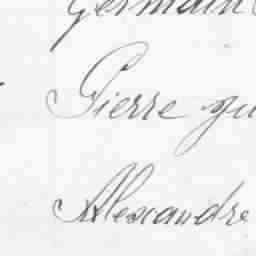 Germain
Pierre qu
Alexandre